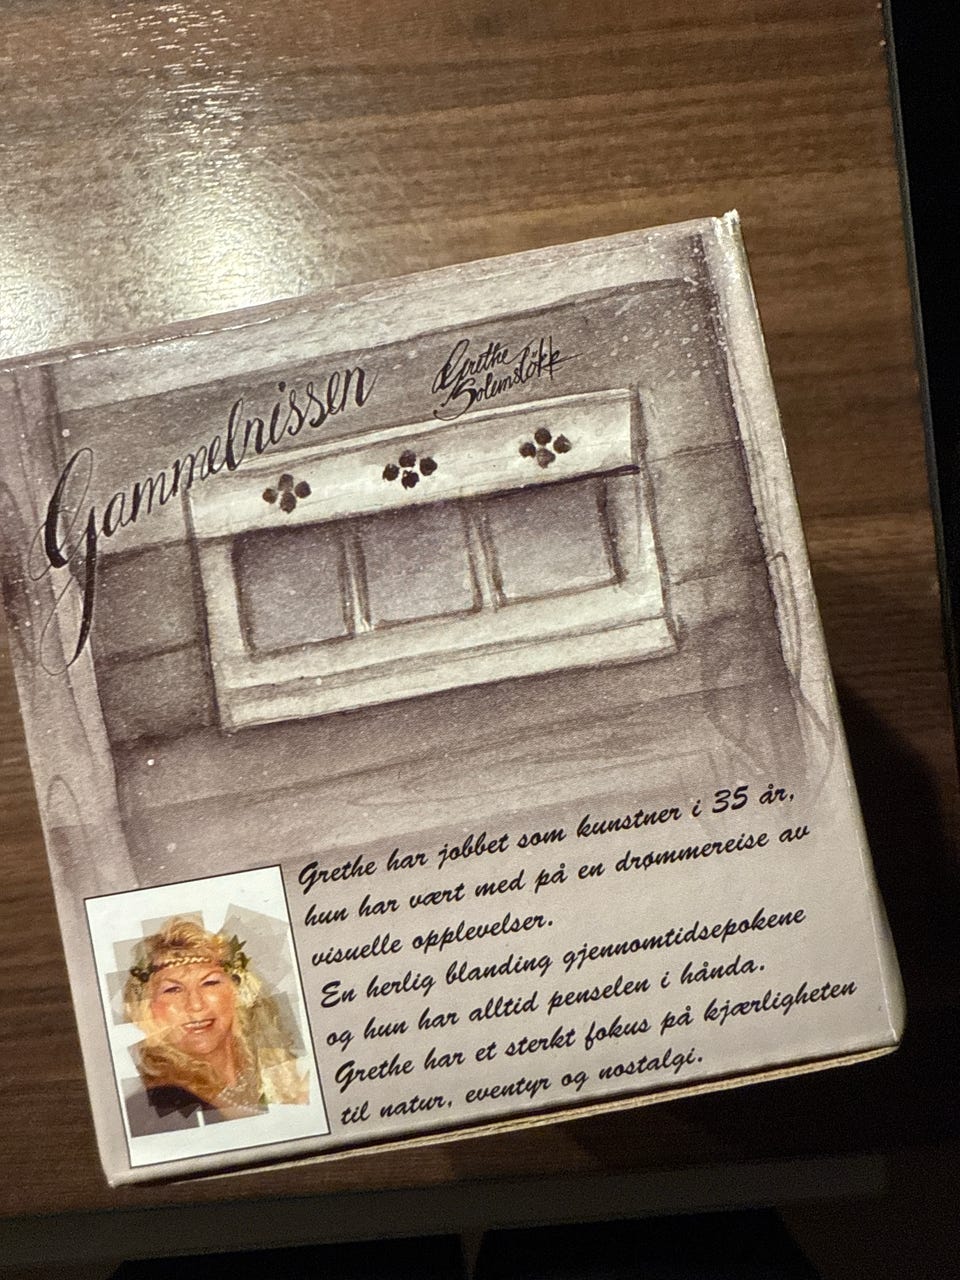 Gammelnissen
Grethe Solemsløkk
Grethe har jobbet som kunstner i 35 år,
hun har vært med på en drømmereise av
visuelle opplevelser.
En herlig blanding gjennomtidsepokene
og hun har alltid penselen i hånda.
Grethe har et sterkt fokus på kjærligheten
til natur, eventyr og nostalgi.